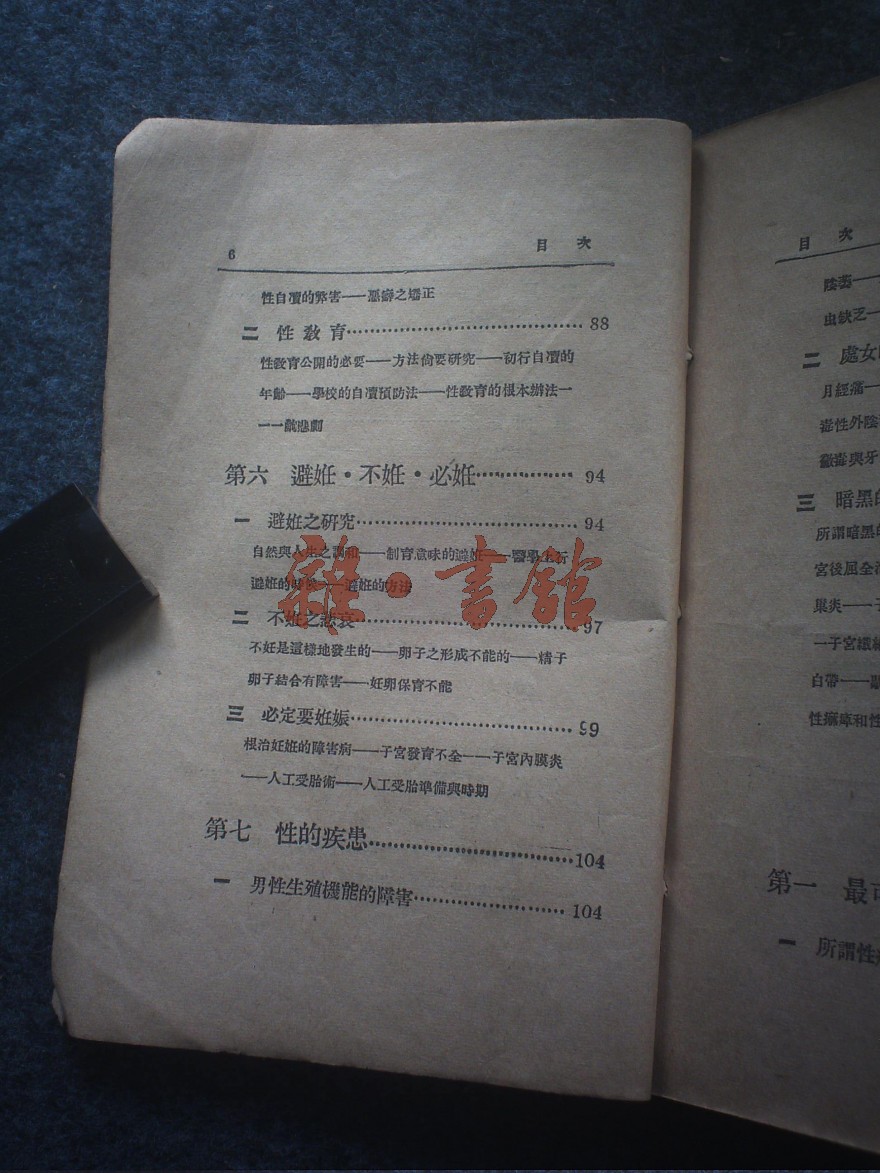 6 目次
性自凟的弊害——惡癖之矯正
二 性教育 88
性教育公開的必要——方法尙要研究——初行自凟的
年齡——學校的自凟預防法——性敎育的根本辦法一
悲劇
第六 避姙・不姙・必姙 94
一 避姙之硏究 94
自然與人生之調和——制育意味的避姙——醫學上行
避姙的時——避姙的方法
二 不姙之悲哀 97
不妊是這樣地發生的——卵子之形成不能的——精子
卵子結合有障害——妊卵保育不能
三 必定要姙娠 99
根治妊姙的障害病——子宮發育不全——子宮內膜炎
——人工受胎術——人工受胎準備與時期
第七 性的疾患 104
一 男性生殖機能的障害 104
雜・書館
目次
陰萎—
虫缺乏—
二 處女
月經痛—
毒性外陰
黴毒與牙
三 暗黑的
所謂暗黑的
宮後屈全
巢炎——子
—子宮纖
白帶——
性痲痺和性
第一 最可
一 所謂性